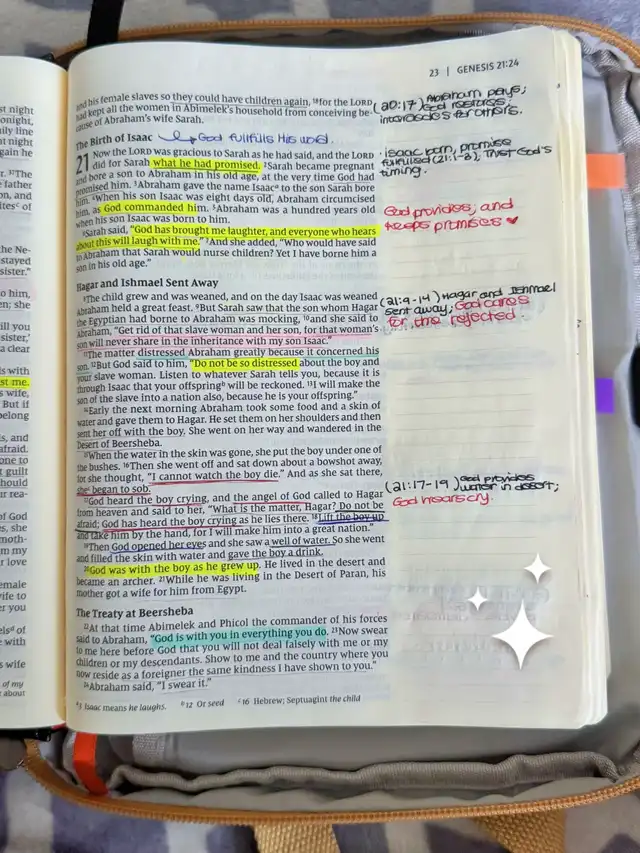 st night
onight,
ily line
st night
gain he
"The
father
on, and
ites of
the Ne-
stayed
sister."
to him,
en; she
ill you
sister,'
a clear
ls with
st me.
s wife,
But if
belong
s, and
afraid.
one to
guilt
should
r rea-
of God
s, she
moth-
m my
r love
emale
ife to
er you
els of
with
s wife
of my
about
23 | GENESIS 21:24
and his female slaves so they could have children again, 18for the LORD
had kept all the women in Abimelek's household from conceiving be-
cause of Abraham's wife Sarah.
The Birth of Isaac God fullfills His word.
21 Now the LORD was gracious to Sarah as he had said, and the LORD
did for Sarah what he had promised. 2Sarah became pregnant
and bore a son to Abraham in his old age, at the very time God had
promised him. 3Abraham gave the name Isaaca to the son Sarah bore
him. 4When his son Isaac was eight days old, Abraham circumcised
him, as God commanded him. 5Abraham was a hundred years old
when his son Isaac was born to him.
6Sarah said, "God has brought me laughter, and everyone who hears
about this will laugh with me." 7And she added, "Who would have said
to Abraham that Sarah would nurse children? Yet I have borne him a
son in his old age."
Hagar and Ishmael Sent Away
8The child grew and was weaned, and on the day Isaac was weaned
Abraham held a great feast. 9But Sarah saw that the son whom Hagar
the Egyptian had borne to Abraham was mocking, 10and she said to
Abraham, "Get rid of that slave woman and her son, for that woman's
son will never share in the inheritance with my son Isaac."
11The matter distressed Abraham greatly because it concerned his
son. 12But God said to him, "Do not be so distressed about the boy and
your slave woman. Listen to whatever Sarah tells you, because it is
through Isaac that your offspringb will be reckoned. 13I will make the
son of the slave into a nation also, because he is your offspring."
14Early the next morning Abraham took some food and a skin of
water and gave them to Hagar. He set them on her shoulders and then
sent her off with the boy. She went on her way and wandered in the
Desert of Beersheba.
15When the water in the skin was gone, she put the boy under one of
the bushes. 16Then she went off and sat down about a bowshot away,
for she thought, "I cannot watch the boy die." And as she sat there,
shec began to sob.
17God heard the boy crying, and the angel of God called to Hagar
from heaven and said to her, "What is the matter, Hagar? Do not be
afraid; God has heard the boy crying as he lies there. 18Lift the boy up
and take him by the hand, for I will make him into a great nation."
19Then God opened her eyes and she saw a well of water. So she went
and filled the skin with water and gave the boy a drink.
20God was with the boy as he grew up. He lived in the desert and
became an archer. 21While he was living in the Desert of Paran, his
mother got a wife for him from Egypt.
The Treaty at Beersheba
22At that time Abimelek and Phicol the commander of his forces
said to Abraham, "God is with you in everything you do. 23Now swear
to me here before God that you will not deal falsely with me or my
children or my descendants. Show to me and the country where you
now reside as a foreigner the same kindness I have shown to you."
24Abraham said, "I swear it."
a3 Isaac means he laughs. b12 Or seed c16 Hebrew; Septuagint the child
(20:17) Abraham pays;
God restores,
intercedes for others.
isaac born, promise
fulfilled (21:1-8), Trust God's
timing.
God provides, and
keeps promises ♥
(21:9-14) Hagar and Ishmael
sent away; God cares
for the rejected.
(21:17-19) God provides
water in desert;
God hears cry.